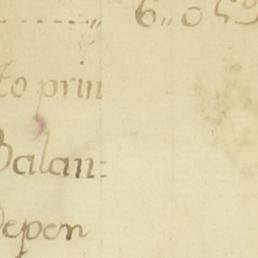 6,,059
to prin
Balan=
Depen